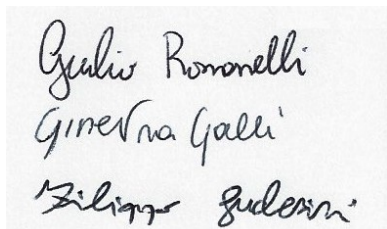 Giulio Romanelli
Ginevra Galli
Filippo